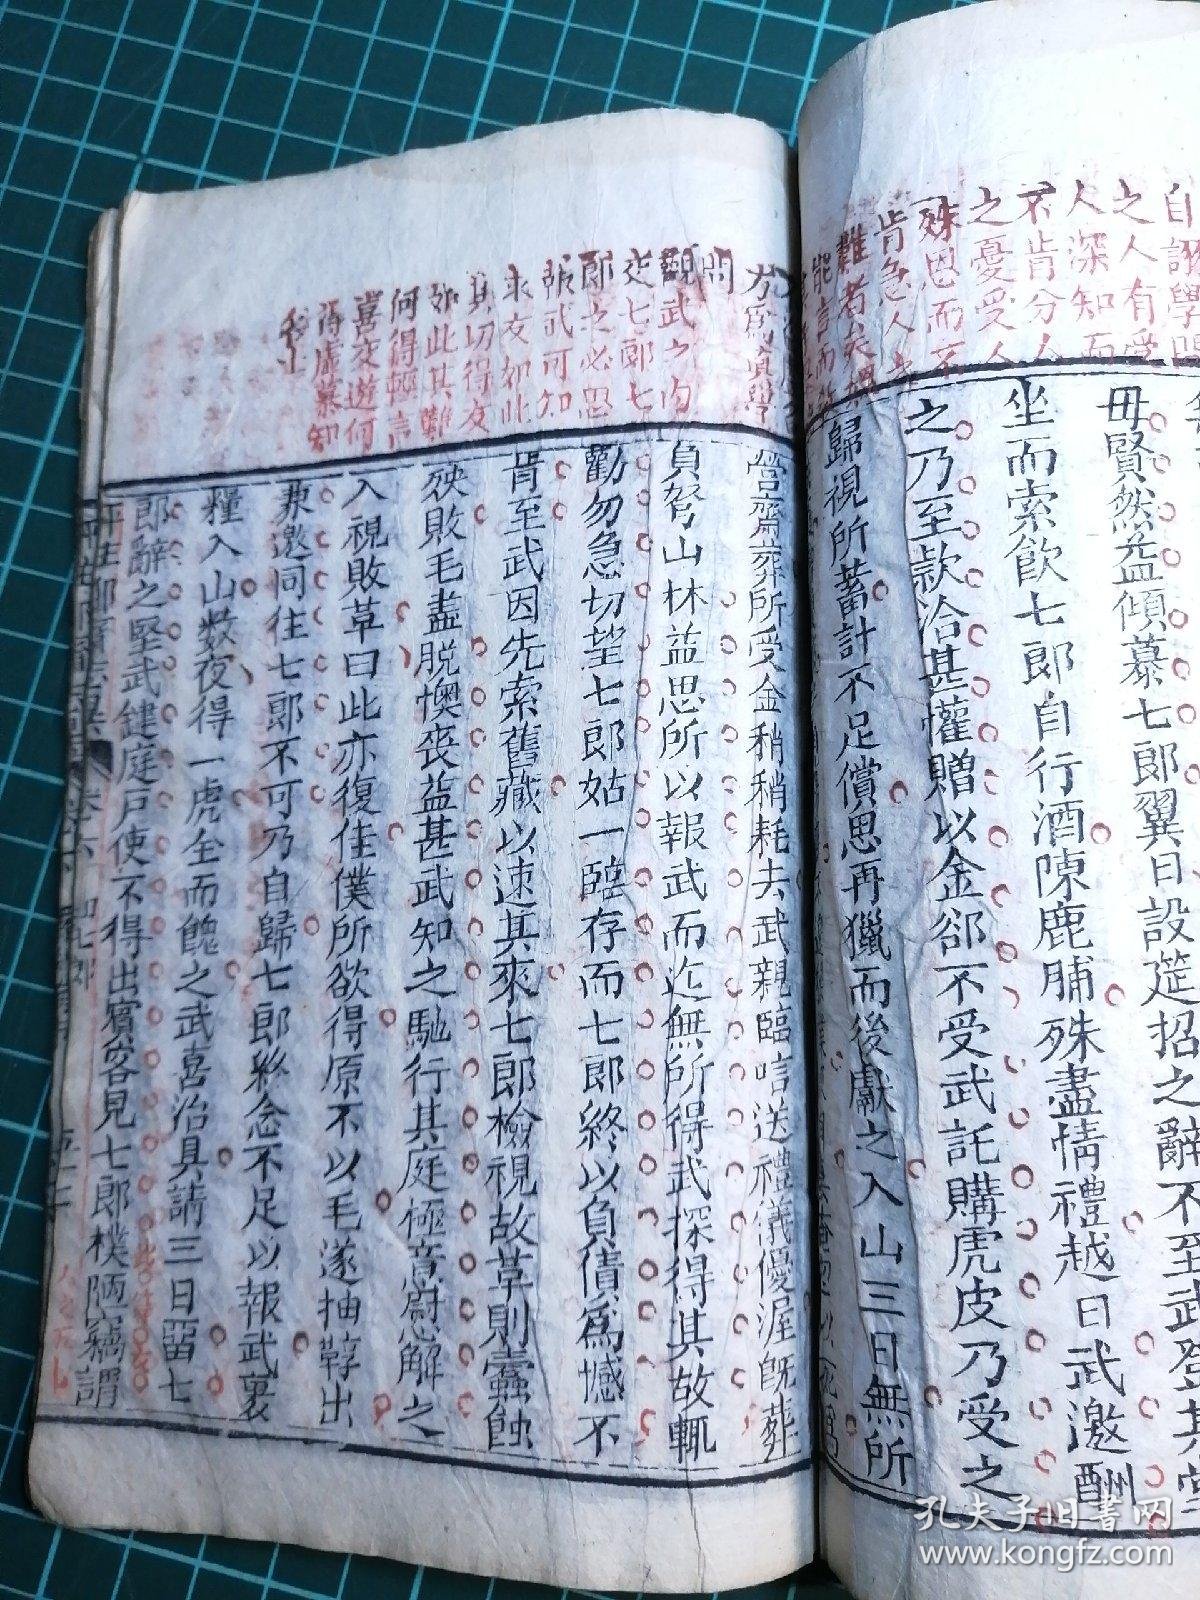 自詡學問
之人有受
人深知而
不肯分人
之憂受人
殊恩而不
肯急人之
難者矣
能言而
毋賢然益傾慕七郎翼日設筵招之辭不至武登其堂
坐而索飲七郎自行酒陳鹿脯殊盡情禮越日武邀酬
之乃至款洽甚懽贈以金郤不受武託購虎皮乃受之
歸視所蓄計不足償思再獵而後獻之入山三日無所
方為真學
問
觀武之內
交七郎七
郎之必思
報武可知
求友如此
其切得友
如此其難
何得輕言
喜交遊何
得虛慕知
營齋葬所受金稍稍耗去武親臨唁送禮儀優渥既葬
負弩山林益思所以報武而迄無所得武探得其故輒
勸勿急切望七郎姑一臨存而七郎終以負債為憾不
肯至武因先索舊藏以速其來七郎檢視故革則蠹蝕
殃敗毛盡脫懊喪益甚武知之馳行其庭極意慰解之
入視敗革曰此亦復佳僕所欲得原不以毛遂抽鞟出
兼邀同往七郎不可乃自歸七郎終念不足以報武裹
糧入山數夜得一虎全而餽之武喜治具請三日留七
郎辭之堅武鍵庭戶使不得出賓客見七郎樸陋竊謂
孔夫子旧書网
www.kongfz.com